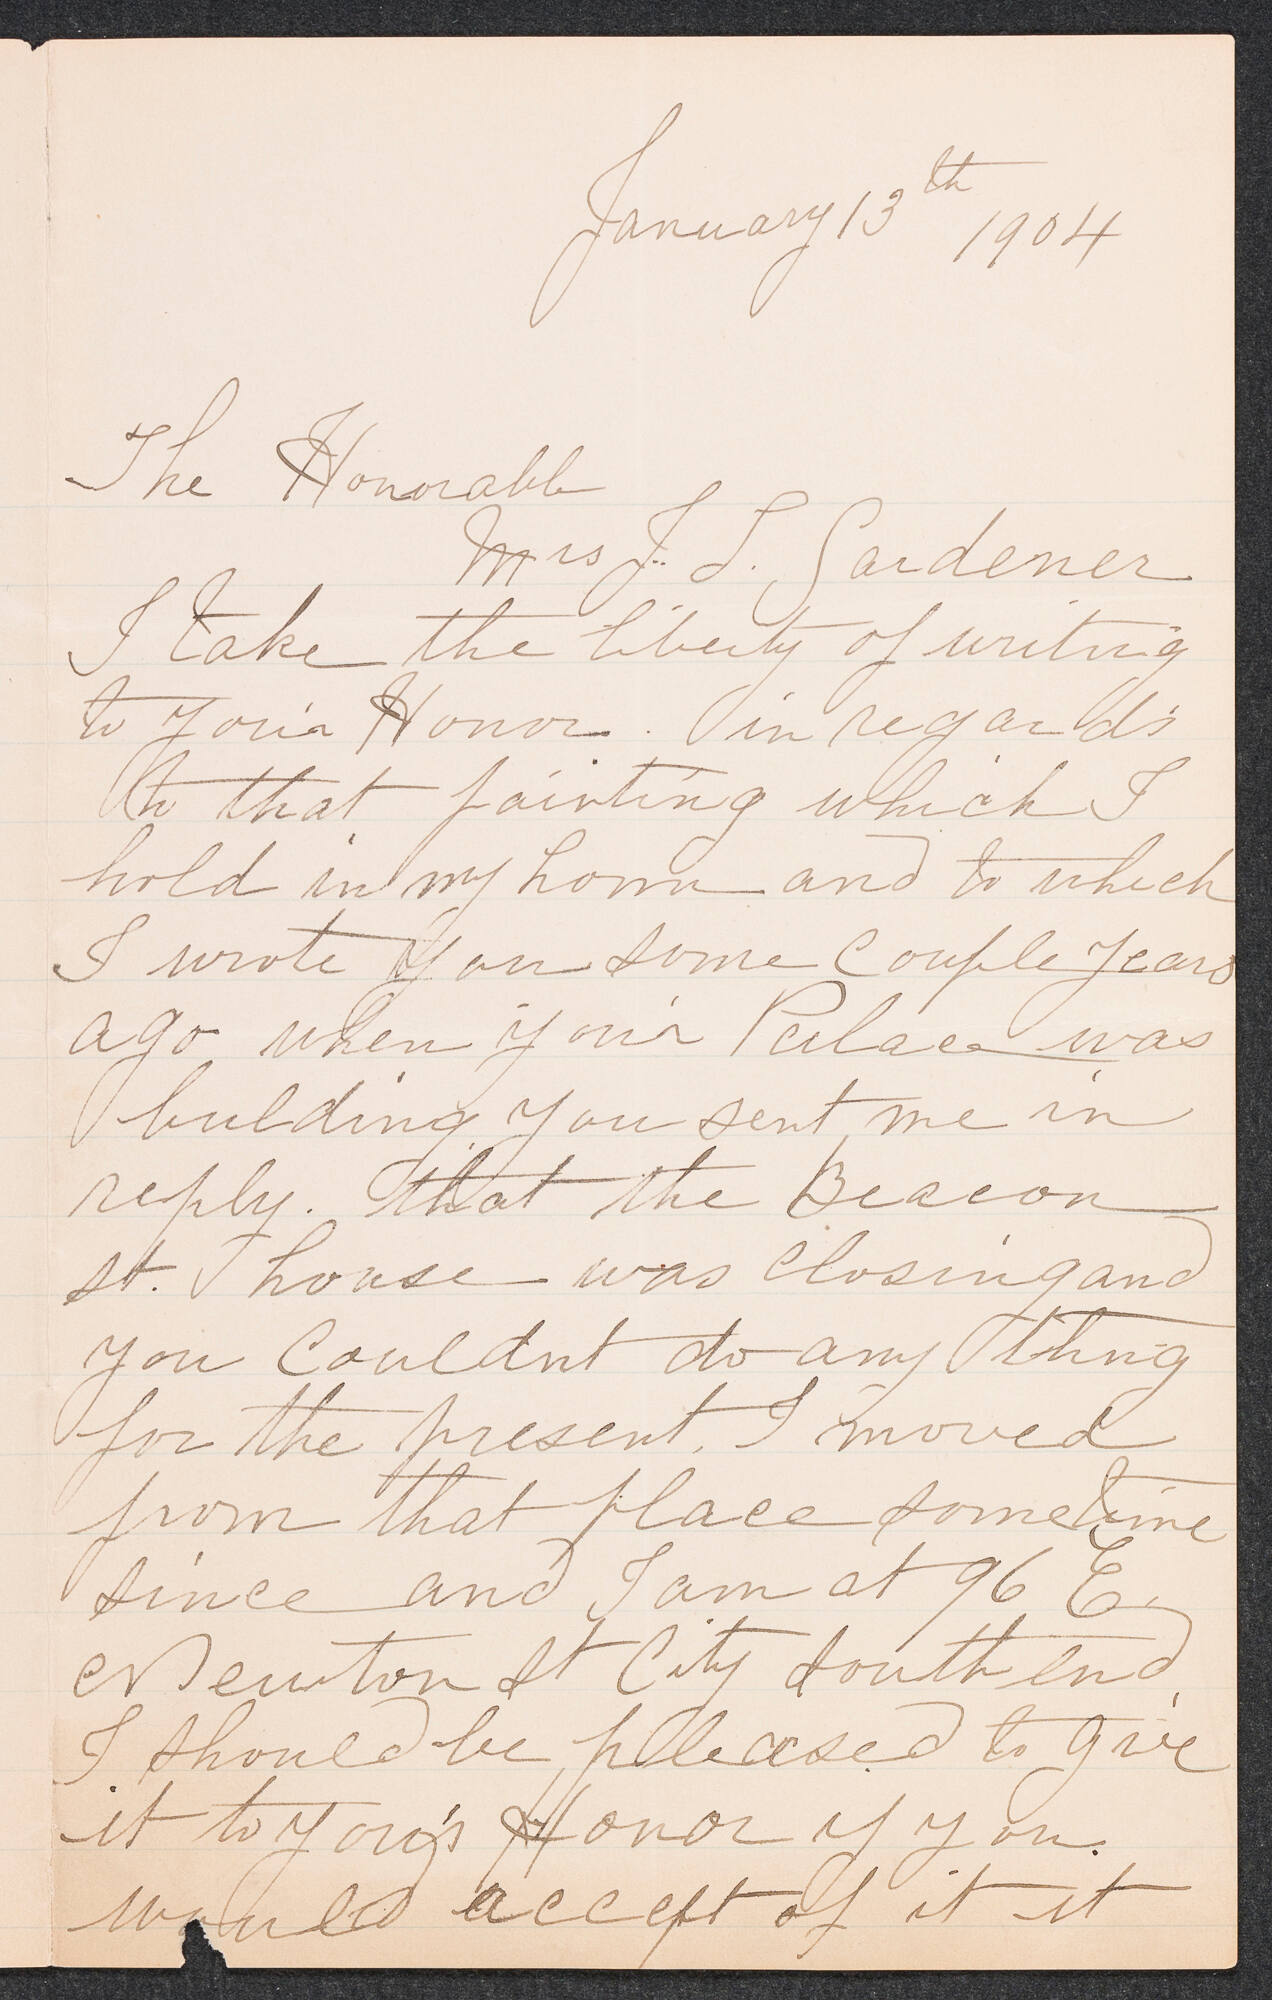 January 13th 1904
The Honorable
Mrs J. L. Gardener
I take the liberty of writing
to your Honor. in regards
to that painting which I
hold in my home and to which
I wrote you some couple years
ago when your Palace was
bulding you sent me in
reply. that the Beacon
st. house was closing and
you couldnt do any thing
for the present. I moved
from that place sometime
since and I am at 96 E.
Newton St City South end.
I should be pleased to give
it to your Honor if you.
would accept of it it